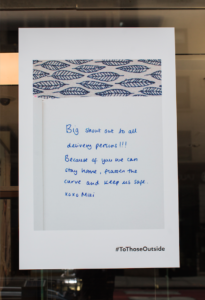 Big shout out to all
delivery persons!!!
Because of you we can
stay home, flatten the
curve and keep us safe.
#ToThoseOutside